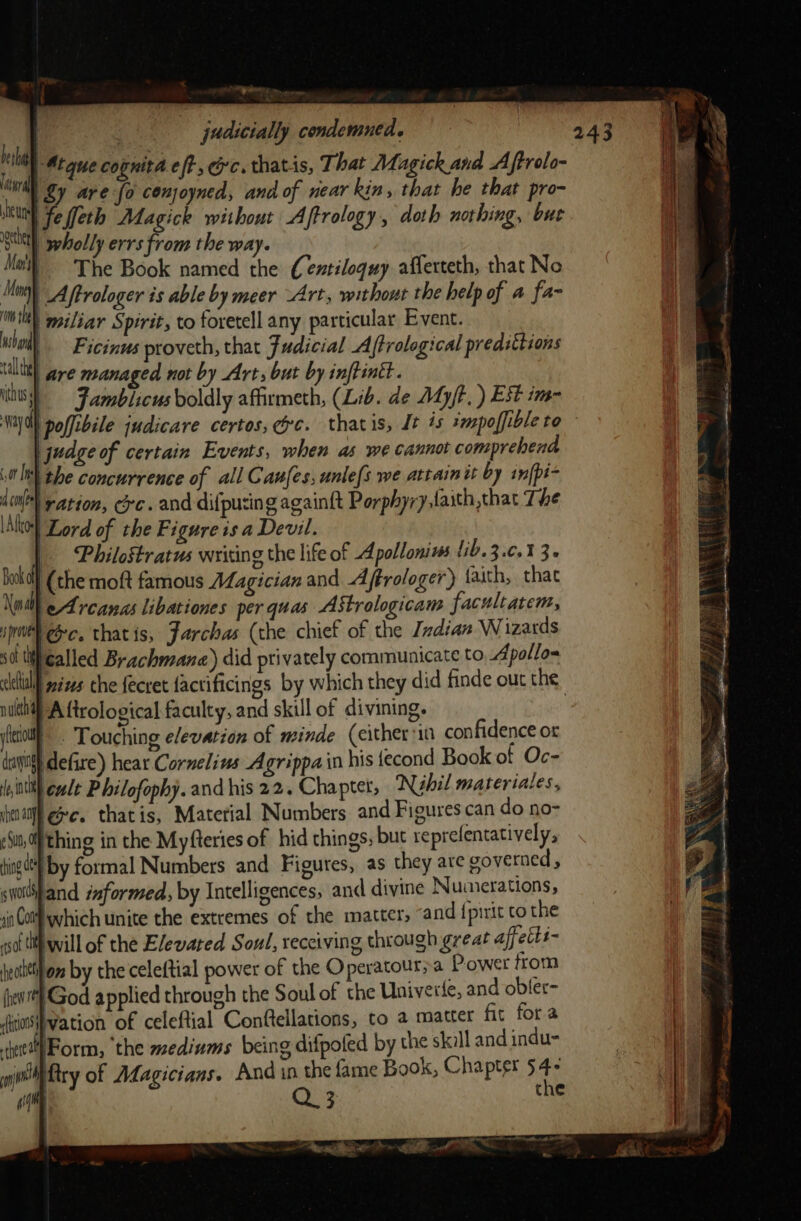 judicially condemned. 243
Atque cognita eſt, &c. that is, That Magick and Aſtrolo-
gy are ſo conjoyned, and of near kin, that he that pro-
feſſeth Magick without Aſtrology, doth nothing, but
wholly errs from the way.
The Book named the Centiloquy aſſerteth, that No
Aſtrologer is able by meer Art, without the help of a fa-
miliar Spirit, to foretell any particular Event.
Ficinus proveth, that Judicial Aſtrological predictions
are managed not by Art, but by inſtinct.
Jamblicus boldly affirmeth, (Lib. de Myſt.) Eſt im-
poſſibile judicare certos, &c. that is, It is impoſſible to
judge of certain Events, when as we cannot comprehend
the concurrence of all Cauſes, unleſs we attain it by inſpi-
ration, &c. and diſputing againſt Porphyry, ſaith, that The
Lord of the Figure is a Devil.
Philoſtratus writing the life of Apollonius lib. 3. c. 13.
(the moſt famous Magician and Aſtrologer) ſaith, that
Arcanas libationes per quas Aſtrologicam facultatem,
&c. that is, Jarchas (the chief of the Indian Wizards
called Brachmanæ) did privately communicate to Apollo-
nius the ſecret ſacrificings by which they did finde out the
Aſtrological faculty, and skill of divining.
Touching elevation of minde (either in confidence or
deſire) hear Cornelius Agrippa in his ſecond Book of Oc-
cult Philoſophy. and his 22. Chapter, Nihil materiales,
&c. that is, Material Numbers and Figures can do no-
thing in the Myſteries of hid things, but repreſentatively,
by formal Numbers and Figures, as they are governed,
and informed, by Intelligences, and divine Numerations,
which unite the extremes of the matter, and ſpirit to the
will of the Elevated Soul, receiving through great affecti-
on by the celeſtial power of the Operatour, a Power from
God applied through the Soul of the Univerſe, and obſer-
vation of celeſtial Conſtellations, to a matter fit for a
Form, the mediums being diſpoſed by the skill and indu-
ſtry of Magicians. And in the ſame Book, Chapter 54.
Q 3 the